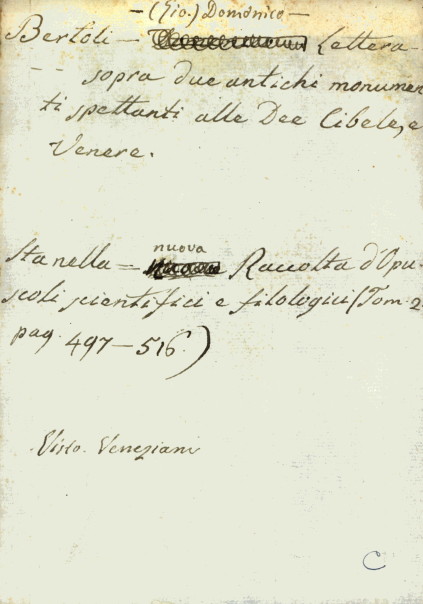 —(Gio.) Domenico—
Bertoli— Lettera—
-- sopra due antichi monumen
ti spettanti alle Dee Cibele, e
Venere.
nuova
Sta nella= Raccolta d'Opu-
scoli scientifici e filologici (Tom. 2.
pag. 497—516.)
Visto. Veneziani
C